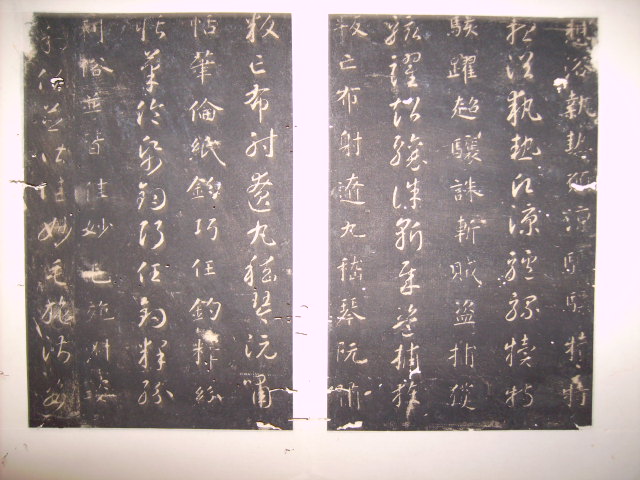 想浴執熱願涼驢騾犢特
想浴執熱願涼驢騾犢特
駭躍超驤誅斬賊盜捕獲
駭躍超驤誅斬賊盜捕獲
叛亡布射遼丸嵇琴阮嘯
叛亡布射遼丸嵇琴阮嘯
恬筆倫紙鈞巧任釣釋紛
恬筆倫紙鈞巧任釣釋紛
利俗並皆佳妙毛施淑姿
利俗並皆佳妙毛施淑姿